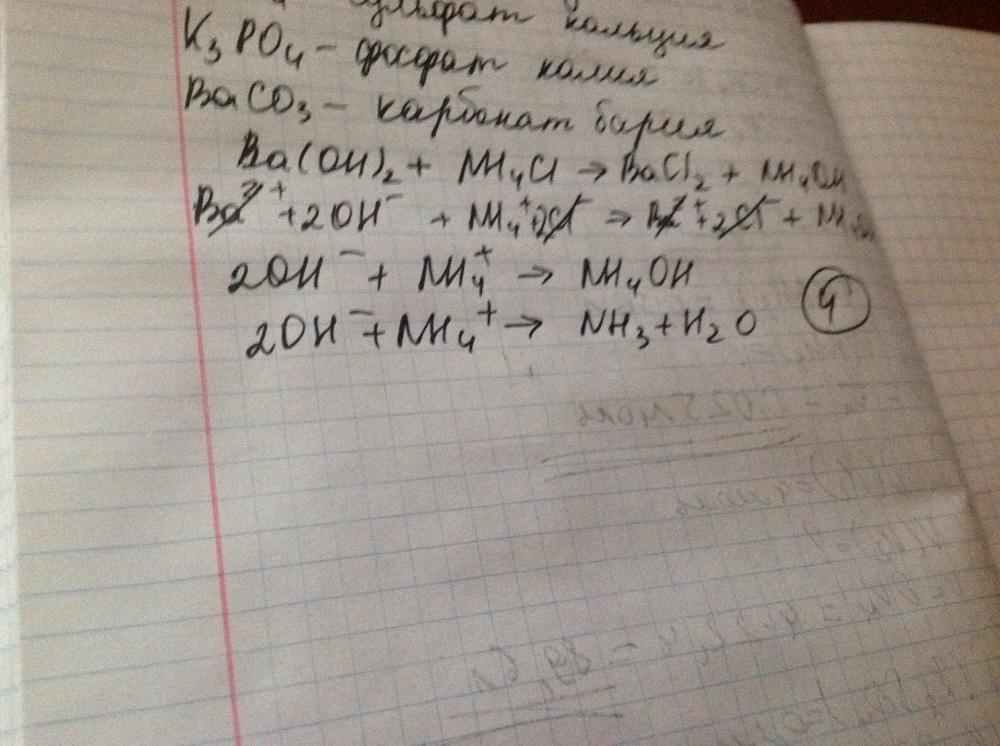 сульфат кальция
K₃PO₄ – фосфат калия
BaCO₃ – карбонат бария
Ba(OH)₂ + NH₄Cl → BaCl₂ + NH₄OH
Ba²⁺ + 2OH⁻ + NH₄⁺ + 2Cl⁻ → Ba²⁺ + 2Cl⁻ +
2OH⁻ + NH₄⁺ → NH₄OH
4
2OH⁻ + NH₄⁺ → NH₃ + H₂O